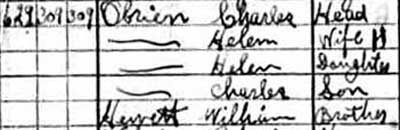 629 309 309 O'Brien Charles Head
— Helen Wife H
— Helen Daughter
— Charles Son
Hewett William Brother